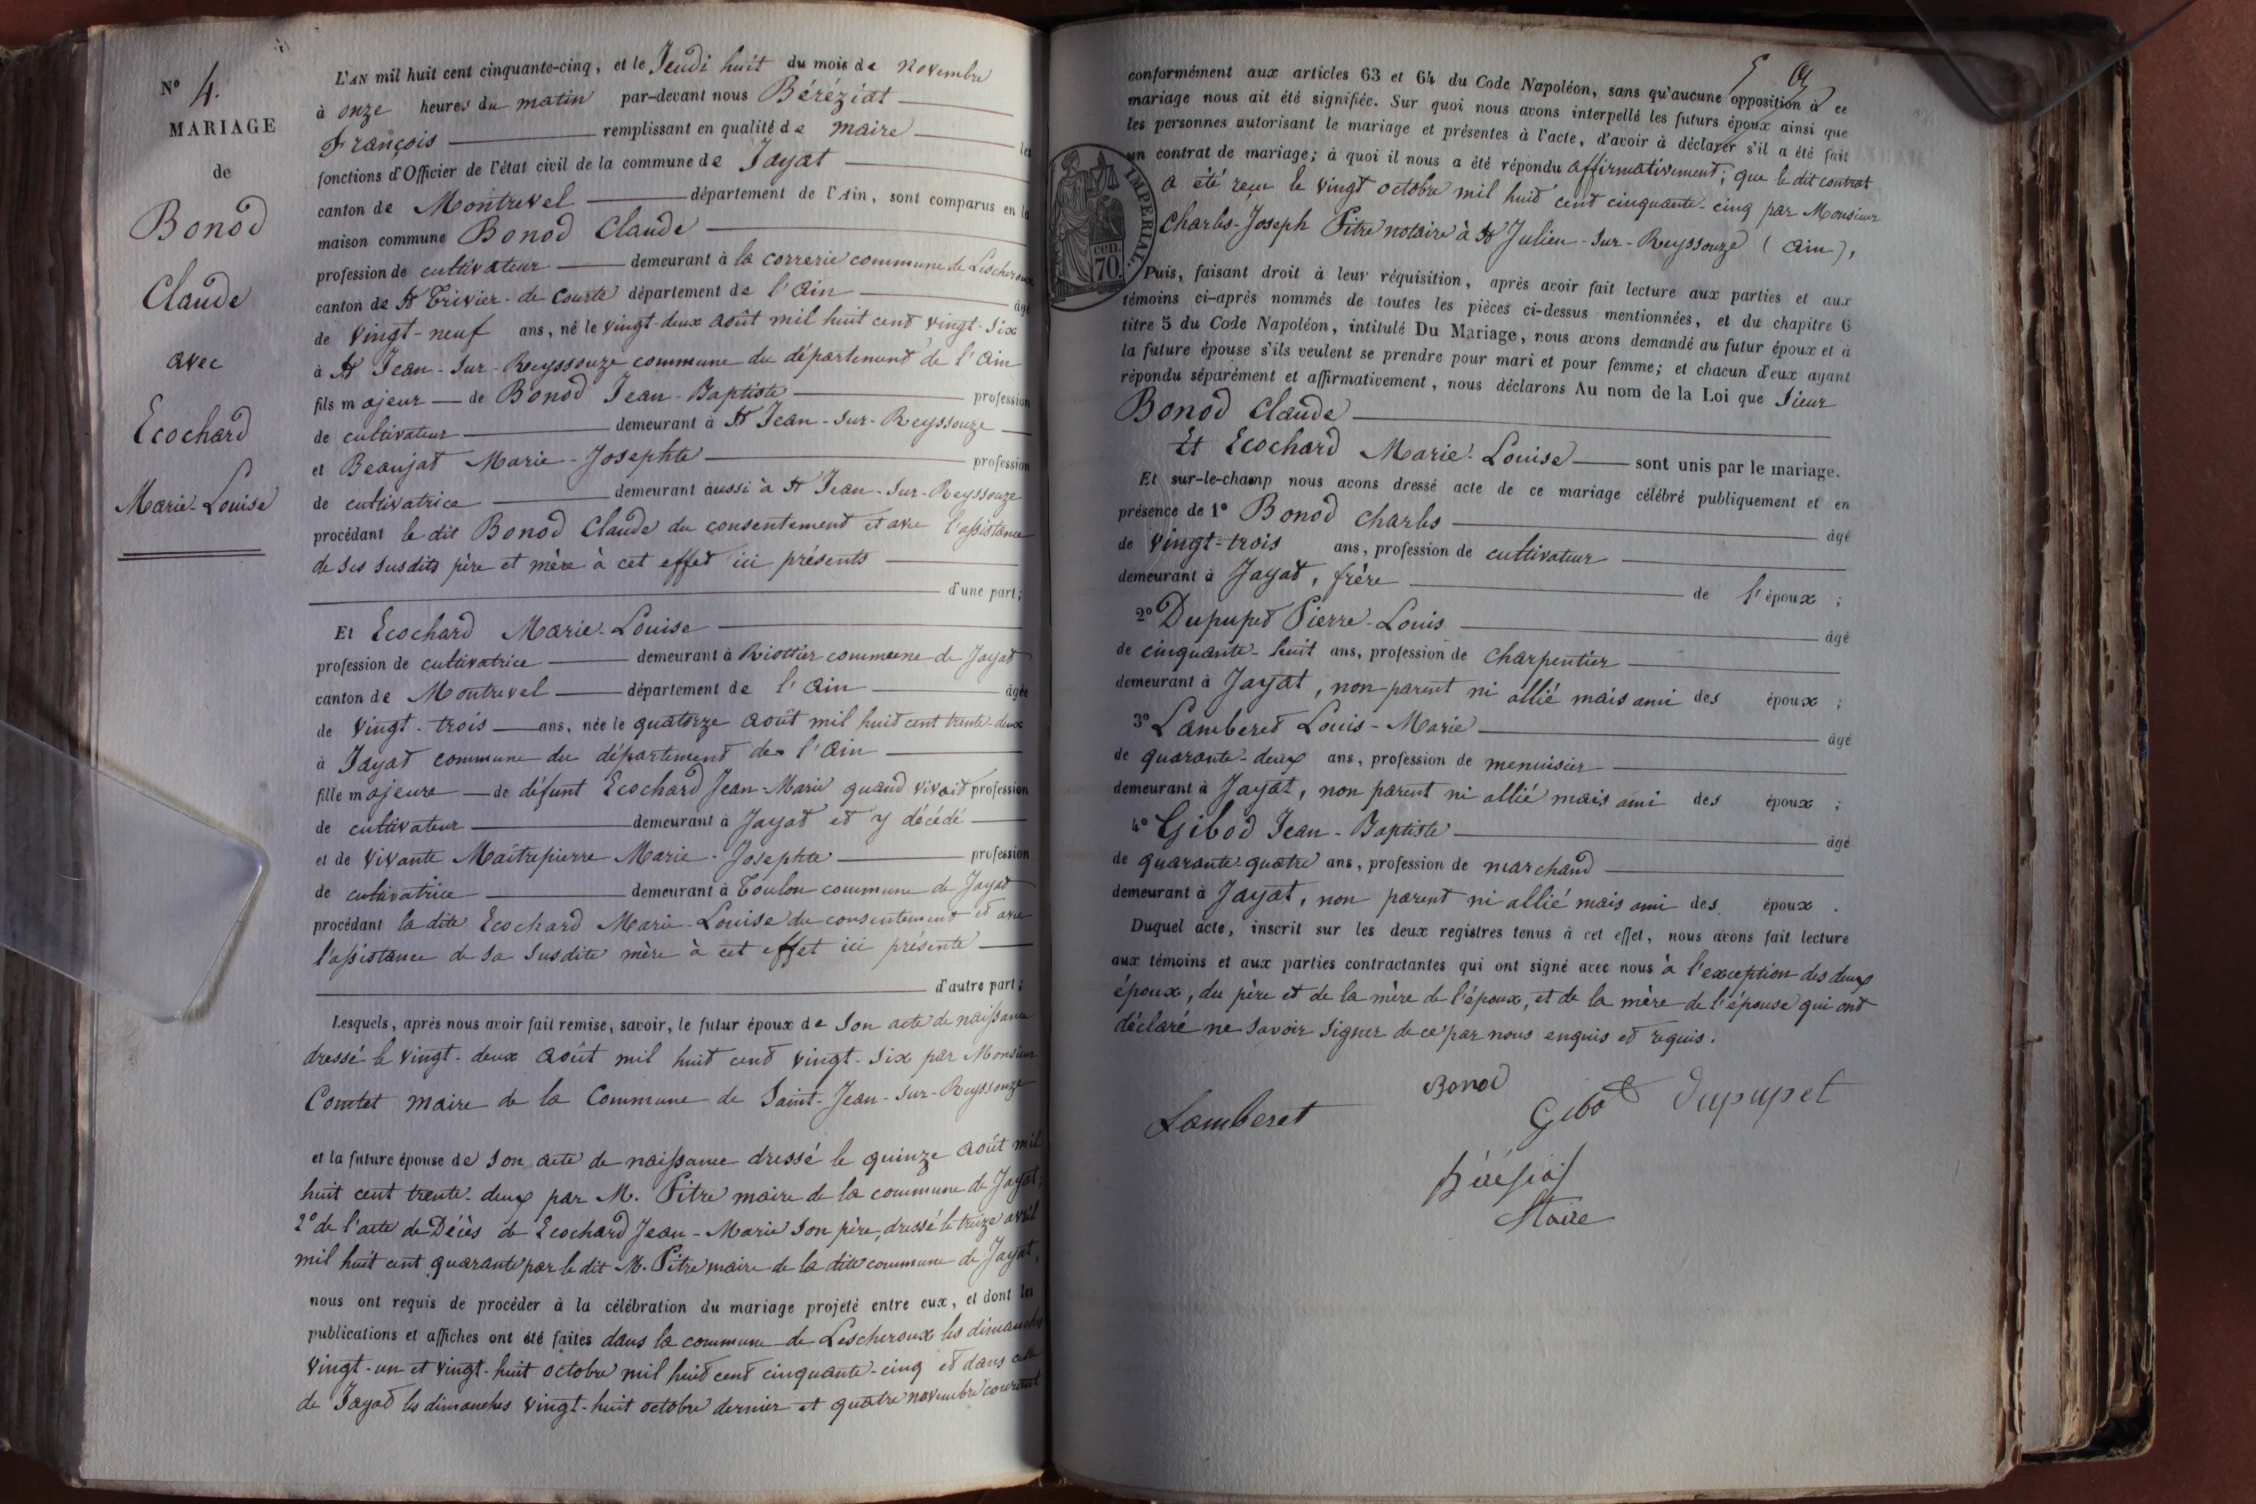 N° 4.
MARIAGE
de
Bonod
Claude
avec
Ecochard
Marie-Louise
L'AN mil huit cent cinquante-cinq, et le Jeudi huit du mois de novembre
à onze heures du matin par-devant nous Béréziat
François remplissant en qualité de maire les
fonctions d'Officier de l'état civil de la commune de Jayat
canton de Montrevel département de l'Ain, sont comparus en la
maison commune Bonod Claude
profession de cultivateur demeurant à la correrie commune de Lescheroux
canton de St Trivier-de Courte département de l'ain âgé
de vingt-neuf ans, né le vingt-deux août mil huit cent vingt-six
à St Jean-sur-Reyssouze commune du département de l'ain
fils majeur de Bonod Jean-Baptiste profession
de cultivateur demeurant à St Jean-sur-Reyssouze
et Beaujat Marie-Josephte profession
de cultivatrice demeurant aussi à St Jean-sur-Reyssouze
procédant le dit Bonod Claude du consentement et avec l'assistance
de ses susdits père et mère à cet effet ici présents
d'une part;
Et Ecochard Marie-Louise
profession de cultivatrice demeurant à Riottier commune de Jayat
canton de Montrevel département de l'ain âgée
de vingt-trois ans, née le quatorze août mil huit cent trente-deux
à Jayat commune du département de l'ain
fille majeure de défunt Ecochard Jean-Marie quand vivait profession
de cultivateur demeurant à Jayat et y décédé
et de vivante Maîtrepierre Marie-Josephte profession
de cultivatrice demeurant à Toulon commune de Jayat
procédant la dite Ecochard Marie-Louise du consentement et avec
l'assistance de sa susdite mère à cet effet ici présente
d'autre part;
Lesquels, après nous avoir fait remise, savoir, le futur époux de son acte de naissance
dressé le vingt-deux août mil huit cent vingt-six par Monsieur
Comtet maire de la Commune de Saint-Jean-sur-Reyssouze
et la future épouse de son acte de naissance dressé le quinze août mil
huit cent trente-deux par M. Pitre maire de la commune de Jayat;
2° de l'acte de Décès de Ecochard Jean-Marie son père, dressé le treize avril
mil huit cent quarante par le dit M. Pitre maire de la dite commune de Jayat,
nous ont requis de procéder à la célébration du mariage projeté entre eux, et dont les
publications et affiches ont été faites dans la commune de Lescheroux les dimanches
vingt-un et vingt-huit octobre mil huit cent cinquante-cinq et dans celle
de Jayat les dimanches vingt-huit octobre dernier et quatre novembre courant
conformément aux articles 63 et 64 du Code Napoléon, sans qu'aucune opposition à ce
mariage nous ait été signifiée. Sur quoi nous avons interpellé les futurs époux ainsi que
les personnes autorisant le mariage et présentes à l'acte, d'avoir à déclarer s'il a été fait
un contrat de mariage; à quoi il nous a été répondu affirmativement; que le dit contrat
a été reçu le vingt octobre mil huit cent cinquante-cinq par Monsieur
Charles-Joseph Pitre notaire à St Julien-sur-Reyssouze (ain),
IMPERIAL.
70.
cen.
Puis, faisant droit à leur réquisition, après avoir fait lecture aux parties et aux
témoins ci-après nommés de toutes les pièces ci-dessus mentionnées, et du chapitre 6
titre 5 du Code Napoléon, intitulé Du Mariage, nous avons demandé au futur époux et à
la future épouse s'ils veulent se prendre pour mari et pour femme; et chacun d'eux ayant
répondu séparément et affirmativement, nous déclarons Au nom de la Loi que sieur
Bonod Claude
Et Ecochard Marie-Louise sont unis par le mariage.
Et sur-le-champ nous avons dressé acte de ce mariage célébré publiquement et en
présence de 1° Bonod Charles âgé
de vingt-trois ans, profession de cultivateur
demeurant à Jayat, frère de l'époux;
2° Dupupet Pierre-Louis âgé
de cinquante-huit ans, profession de charpentier
demeurant à Jayat, non parent ni allié mais ami des époux;
3° Lamberet Louis-Marie âgé
de quarante-deux ans, profession de menuisier
demeurant à Jayat, non parent ni allié mais ami des époux;
4° Gibod Jean-Baptiste âgé
de quarante-quatre ans, profession de marchand
demeurant à Jayat, non parent ni allié mais ami des époux.
Duquel acte, inscrit sur les deux registres tenus à cet effet, nous avons fait lecture
aux témoins et aux parties contractantes qui ont signé avec nous à l'exception des deux
époux, du père et de la mère de l'époux, et de la mère de l'épouse qui ont
déclaré ne savoir signer de ce par nous enquis et requis.
Bonod
Lamberet Gibod Dupupet
Béréziat
Maire